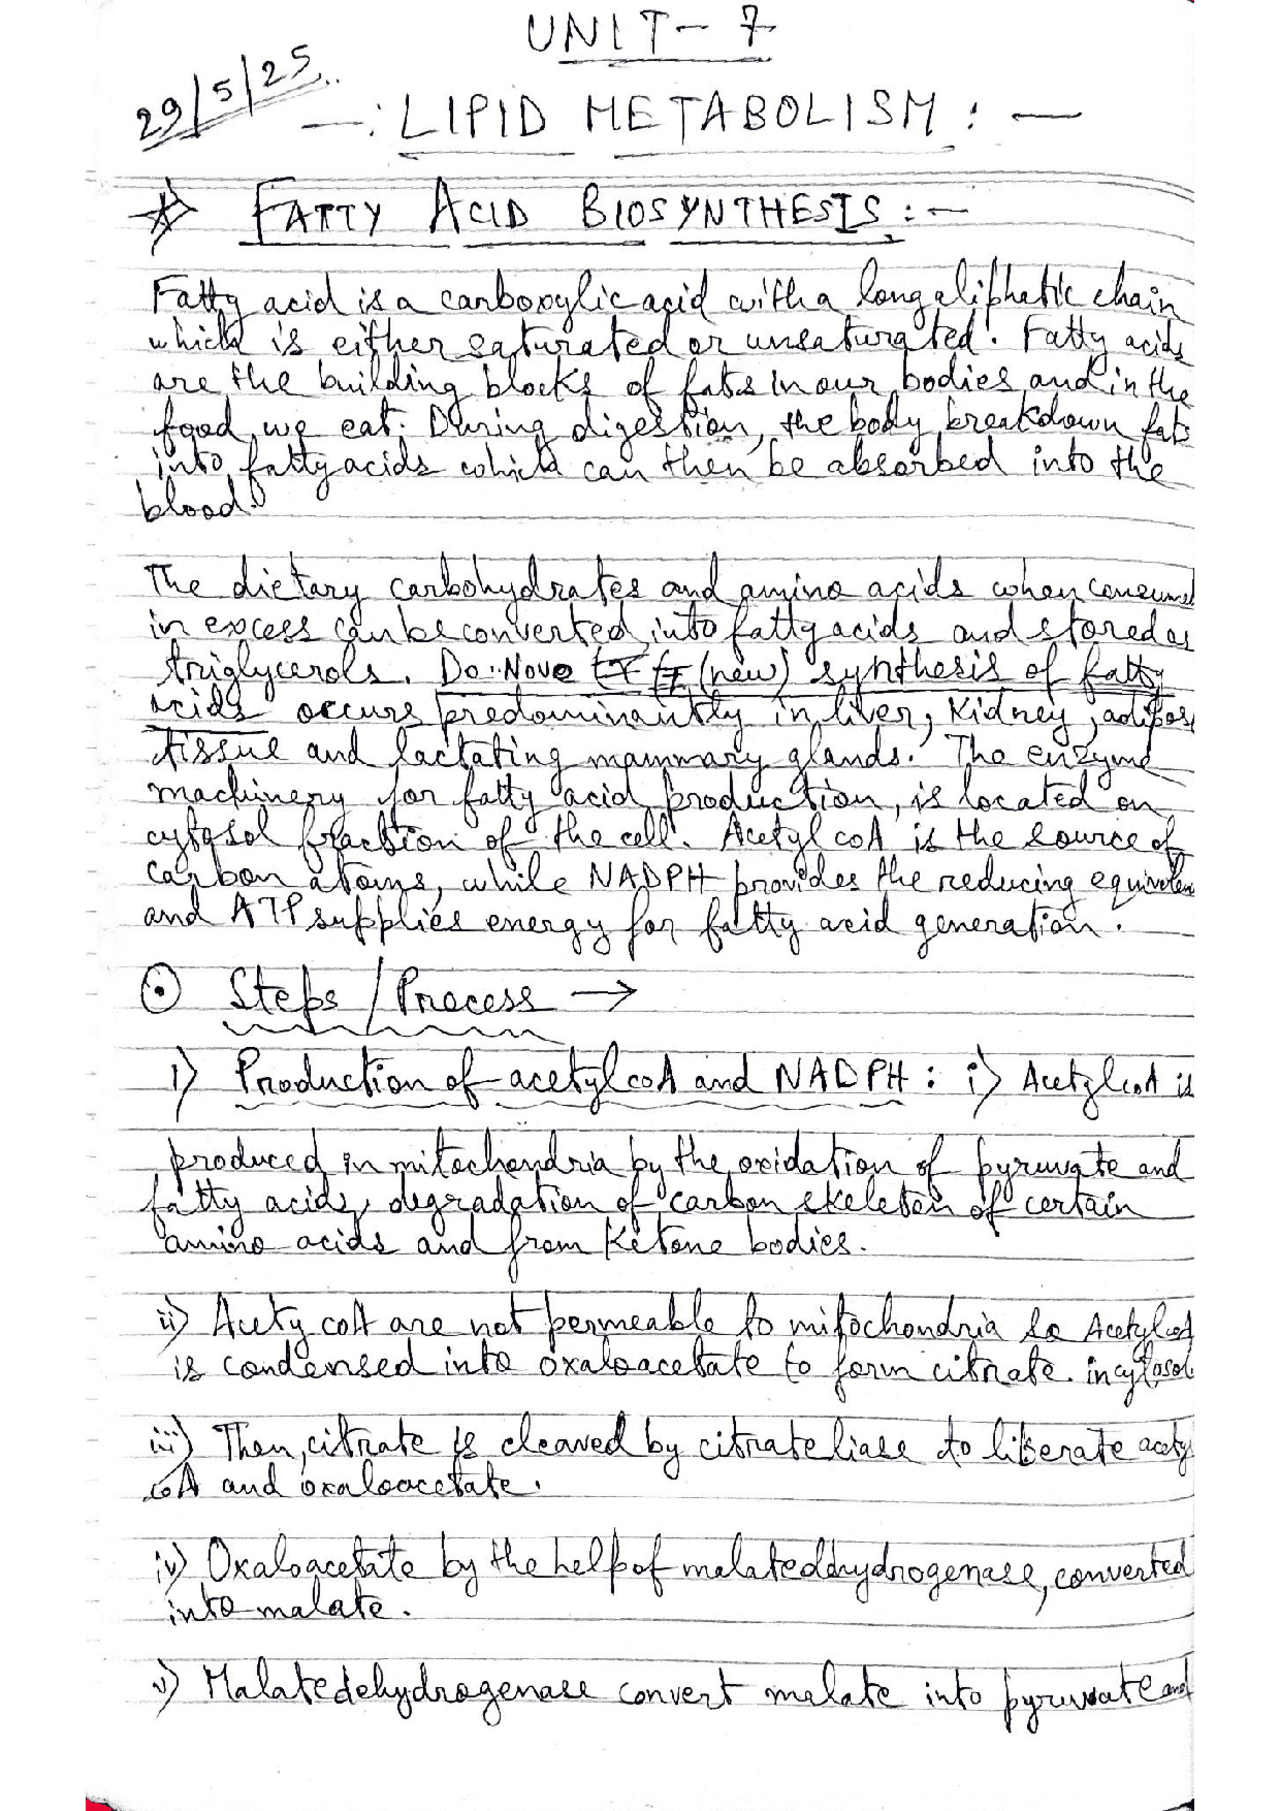 UNIT - 7
29/5/25
-: LIPID METABOLISM : -
FATTY ACID BIOSYNTHESIS : -
Fatty acid is a carboxylic acid with a long aliphatic chain
which is either saturated or unsaturated. Fatty acids
are the building blocks of fats in our bodies and in the
food we eat. During digestion, the body breakdown fats
into fatty acids which can then be absorbed into the
blood.
The dietary carbohydrates and amino acids when consumed
in excess can be converted into fatty acids and stored as
triglycerols. De-Novo (new) synthesis of fatty
acids occurs predominantly in liver, Kidney, adipos
tissue and lactating mammary glands. The enzyme
machinery for fatty acid production, is located on
cytosol fraction of the cell. Acetyl coA is the source of
Carbon atoms, while NADPH provides the reducing equivalen
and ATP supplies energy for fatty acid generation.
Steps / Process →
1) Production of acetyl coA and NADPH : i) Acetyl coA is
produced in mitochondria by the oxidation of pyruvate and
fatty acids, degradation of carbon skeleton of certain
amino acids and from Ketone bodies.
ii) Acety coA are not permeable to mitochondria So Acetyl coA
is condensed into oxaloacetate to form citrate. in cytosol
iii) Then, citrate is cleaved by citrate liase to liberate acety
coA and oxaloacetate.
iv) Oxaloacetate by the help of malatedehydrogenase, converted
into malate.
v) Malatedehydrogenase convert malate into pyruvate and